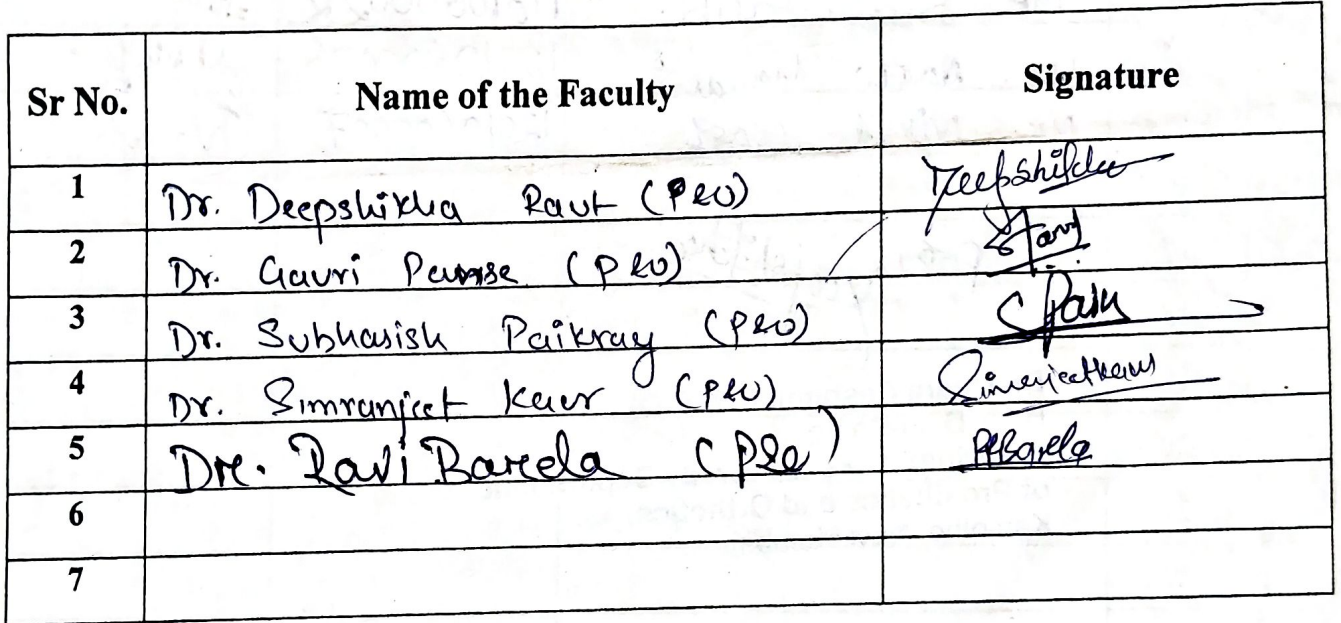 Sr No. Name of the Faculty Signature
1 Dr. Deepshikha Raut (P&O) Deepshikha
2 Dr. Gauri Pansse (P&O)
3 Dr. Subhasish Paikray (P&O)
4 Dr. Simranjeet Kaur (P&O) Simranjeetkaur
5 Dr. Ravi Barela (P&O) RBarela
6
7